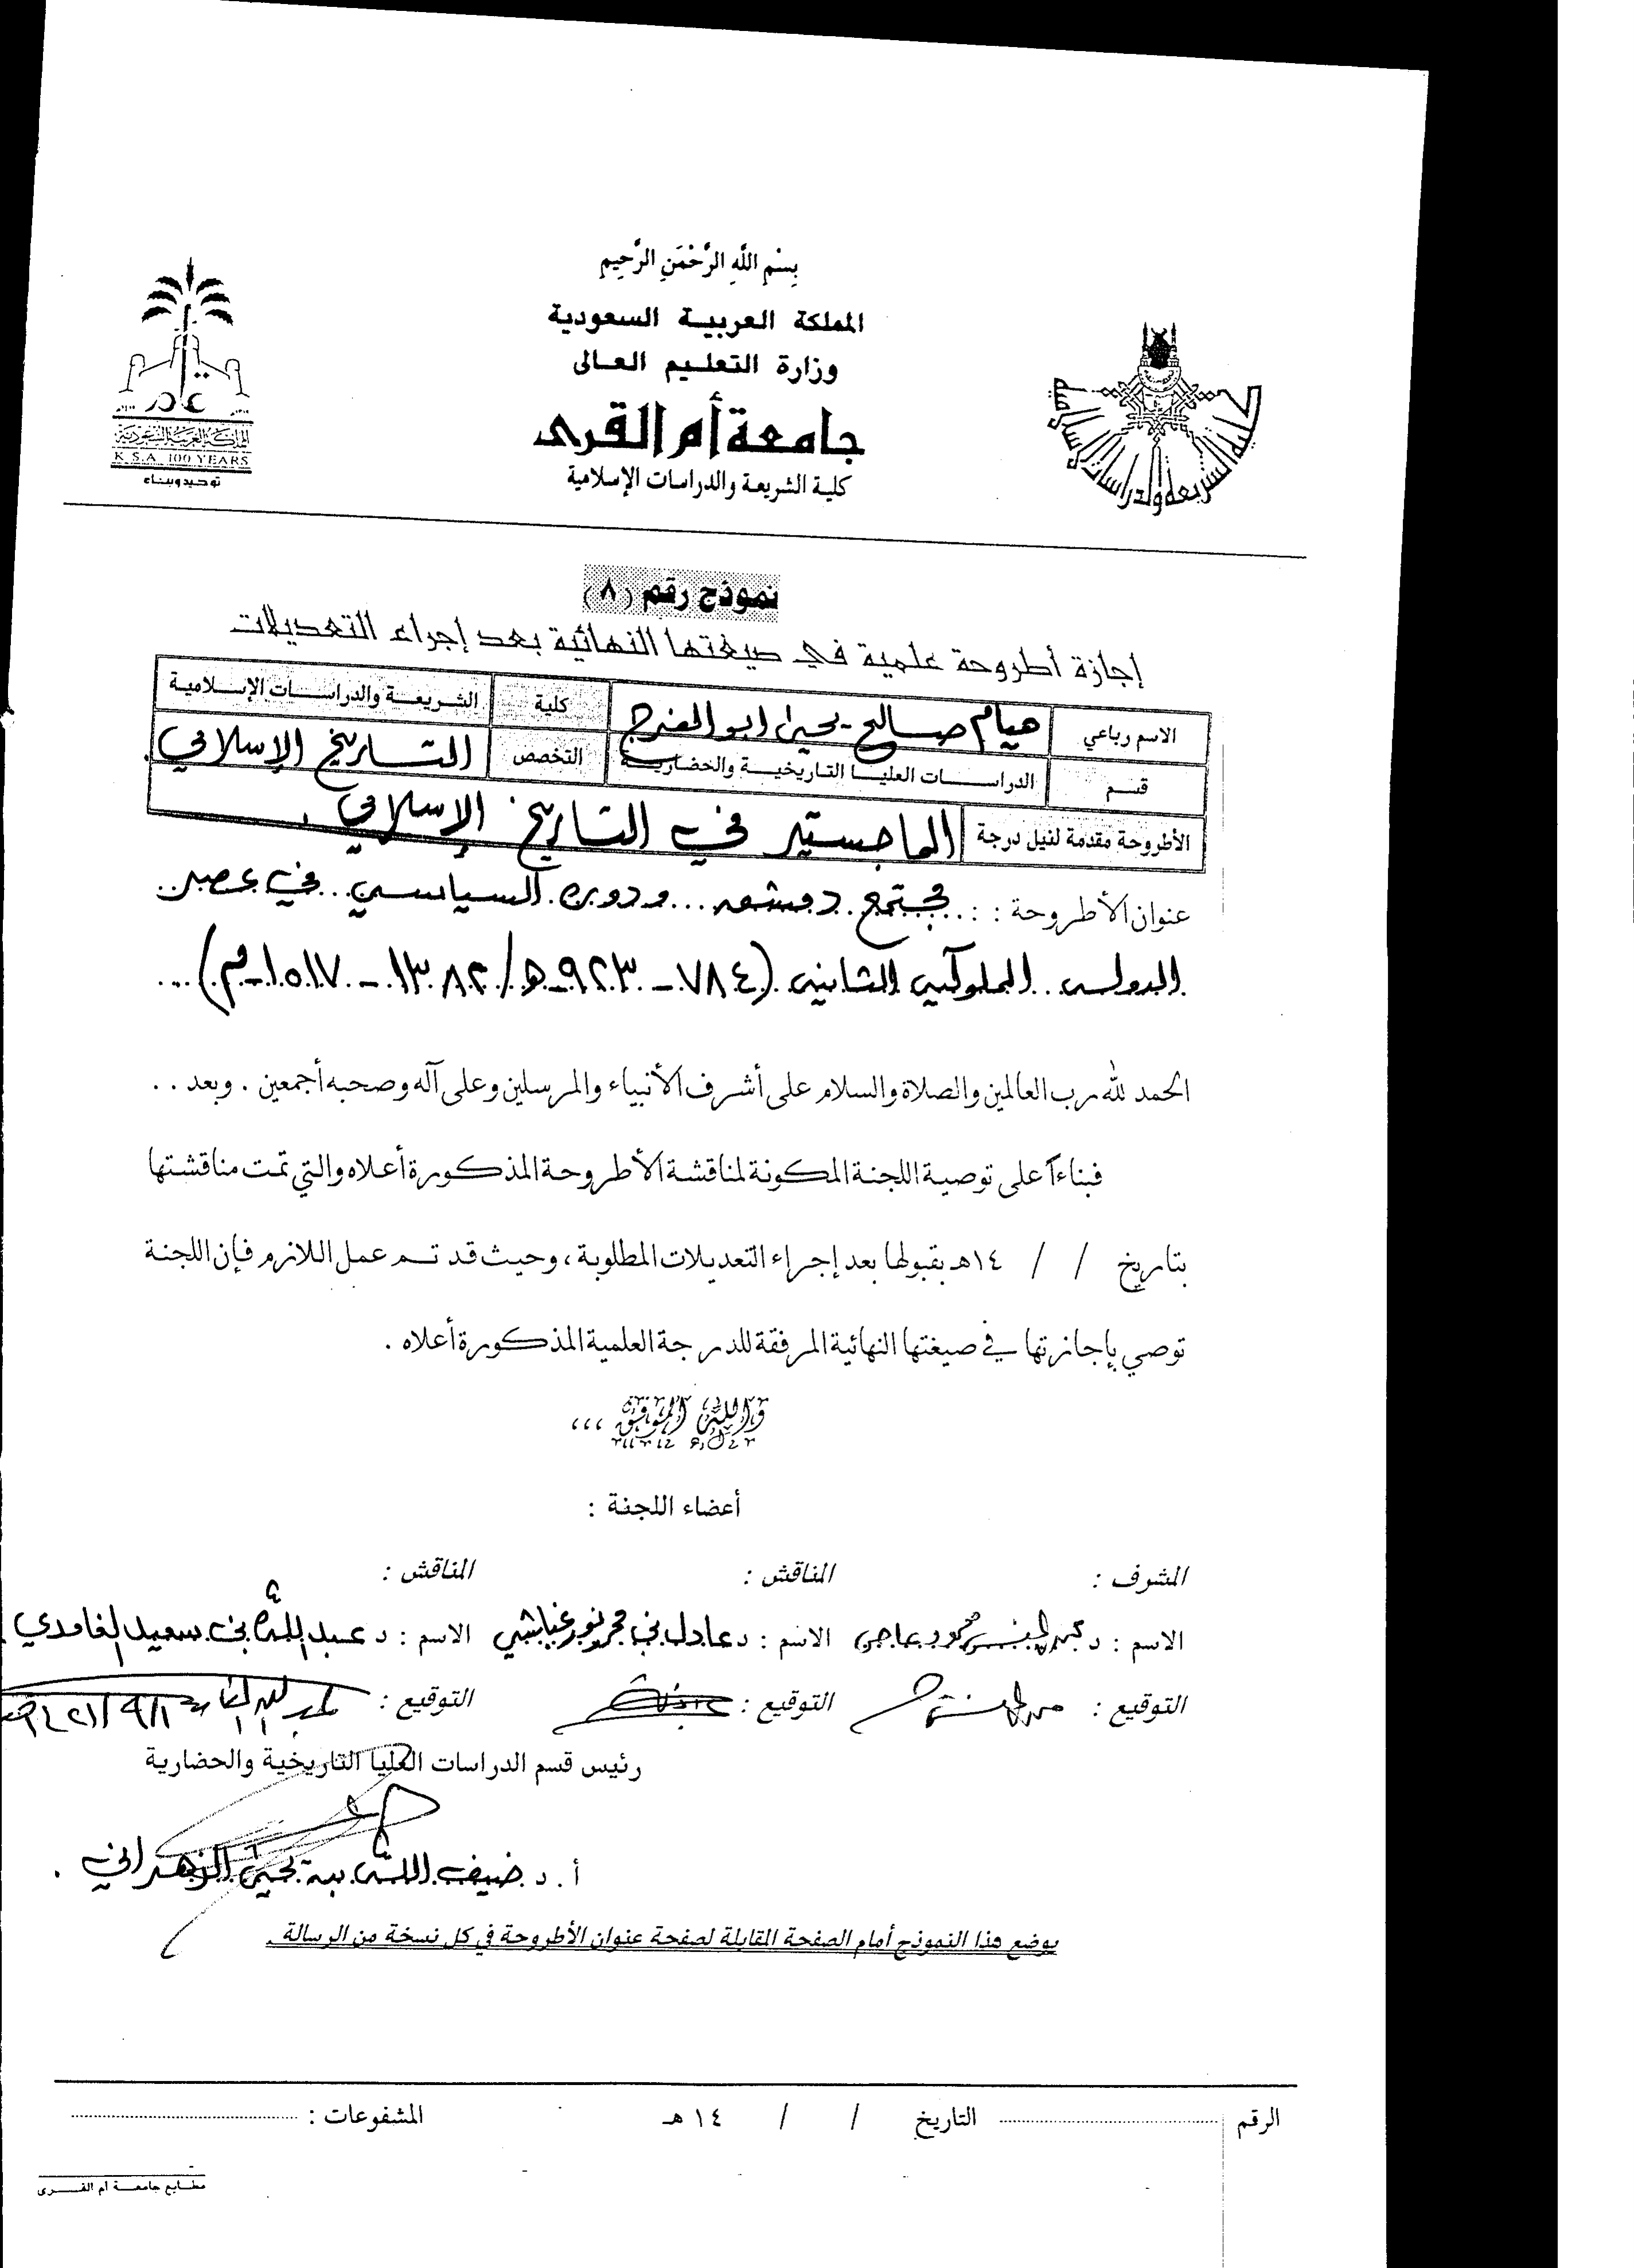 بِسْمِ اللَّهِ الرَّحْمَنِ الرَّحِيمِ
المملكة العربية السعودية
وزارة التعليم العالى
جامعة أم القرى
كلية الشريعة والدراسات الإسلامية
المملكة العربية السعودية
K.S.A 100 YEARS
توحيد وبناء
نموذج رقم (٨)
إجازة أطروحة علمية في صيغتها النهائية بعد إجراء التعديلات
الاسم رباعي هيام صالح يحيى ابو المفرج كلية الشريعة والدراسات الإسلامية
قسم الدراسات العليا التاريخية والحضارية التخصص التاريخ الإسلامي.
الأطروحة مقدمة لنيل درجة الماجستير في التاريخ الإسلامي.
عنوان الأطروحة : : مجتمع دمشق ودوره السياسي في عصر
الدولة المملوكية الثانية (٧٨٤ - ٩٢٣هـ / ١٣٨٢ - ١٥١٧م)
الحمد لله رب العالمين والصلاة والسلام على أشرف الأنبياء والمرسلين وعلى آله وصحبه أجمعين . وبعد . .
فبناءاً على توصية اللجنة المكونة لمناقشة الأطروحة المذكورة أعلاه والتي تمت مناقشتها
بتاريخ / / ١٤هـ بقبولها بعد إجراء التعديلات المطلوبة ، وحيث قد تم عمل اللازم فإن اللجنة
توصي بإجازتها في صيغتها النهائية المرفقة للدرجة العلمية المذكورة أعلاه .
والله الموفق ،،،
أعضاء اللجنة :
المشرف : المناقش : المناقش :
الاسم : د محمود الاسم : د عادل بن محمد نور غباشي الاسم : د عبد الله بن سعيد الغامدي
التوقيع : التوقيع : التوقيع :
رئيس قسم الدراسات العليا التاريخية والحضارية
أ . د ضيف الله بن يحيى الزهراني .
يوضع هذا النموذج أمام الصفحة المقابلة لصفحة عنوان الأطروحة في كل نسخة من الرسالة .
الرقم التاريخ / / ١٤ هـ المشفوعات :
مطابع جامعة ام القرى